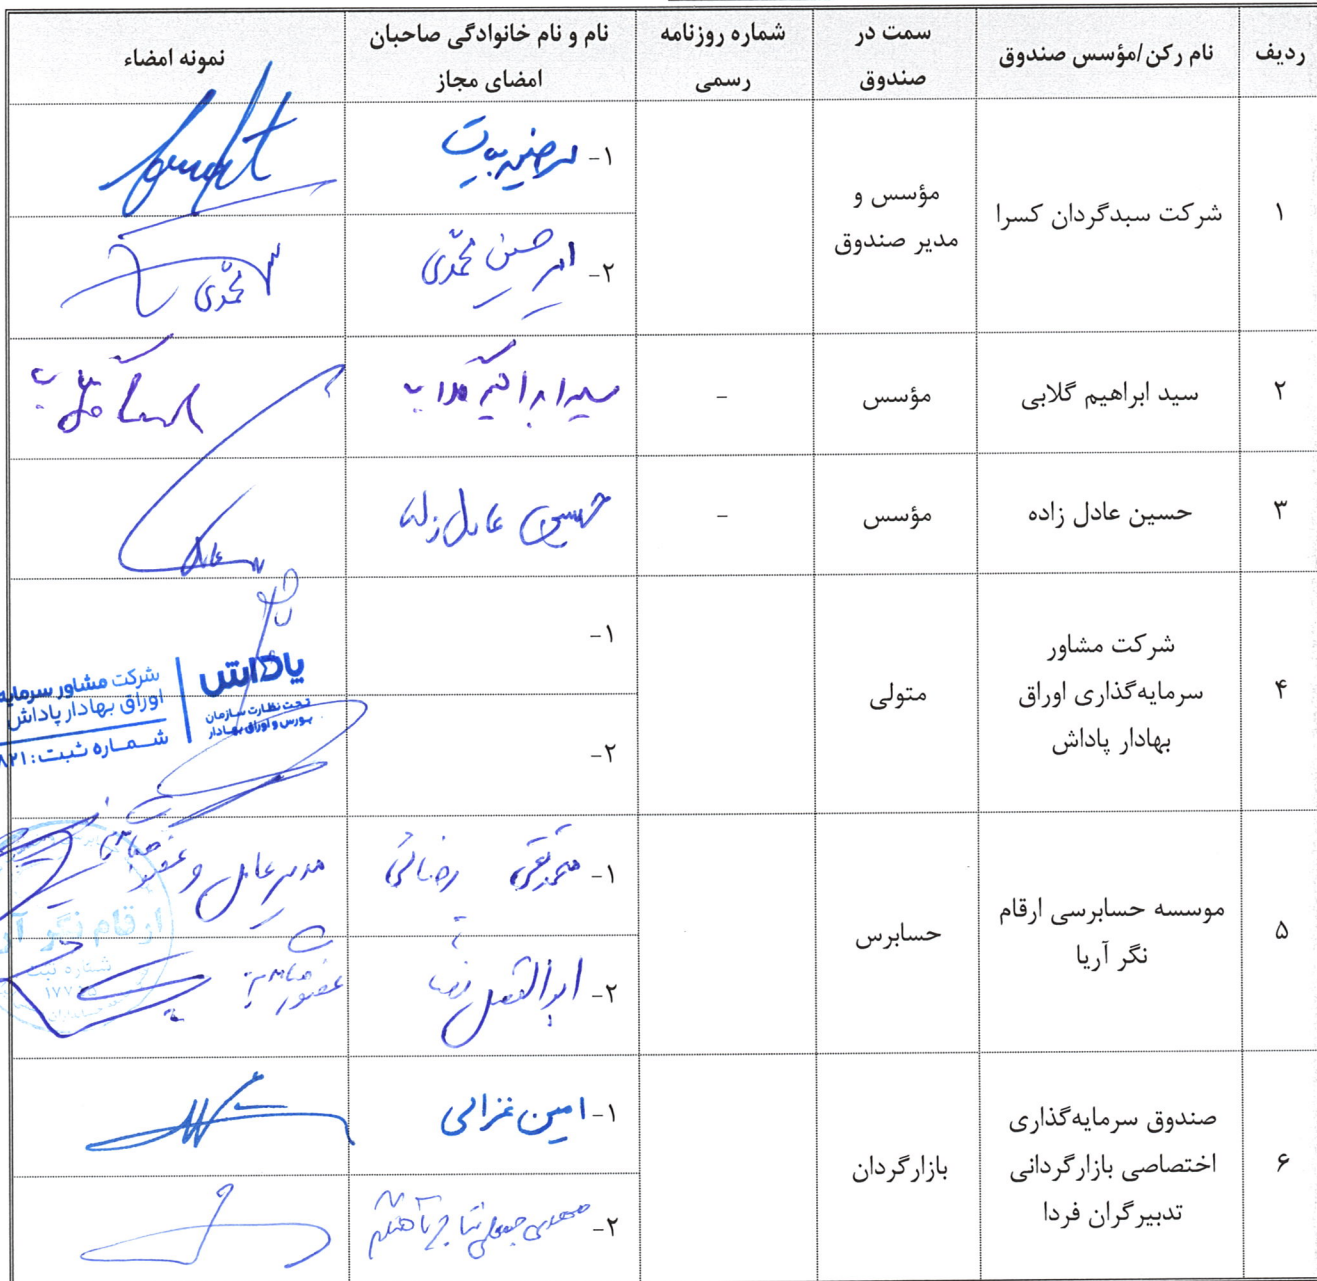 ردیف
نام رکن/مؤسس صندوق
سمت در
صندوق
شماره روزنامه
رسمی
نام و نام خانوادگی صاحبان
امضای مجاز
نمونه امضاء
۱
شرکت سبدگردان کسرا
مؤسس و
مدیر صندوق
۱- مرضیه بیات
۲- امیر حسین محمّدی
محمّدی
۲
سید ابراهیم گلابی
مؤسس
-
سید ابراهیم گلابی
۳
حسین عادل زاده
مؤسس
-
حسین عادل زاده
۴
شرکت مشاور
سرمایه‌گذاری اوراق
بهادار پاداش
متولی
۱-
۲-
پاداش
تحت نظارت سازمان
بورس و اوراق بهادار
شرکت مشاور سرمایه
اوراق بهادار پاداش
شماره ثبت:
۵
موسسه حسابرسی ارقام
نگر آریا
حسابرس
۱- محمدتقی رضائی
مدیر عامل و عضو
۲- ابوالفضل
عضو
ارقام نگر
شماره ثبت
۶
صندوق سرمایه‌گذاری
اختصاصی بازارگردانی
تدبیرگران فردا
بازارگردان
۱- امین غزالی
۲- مهدی